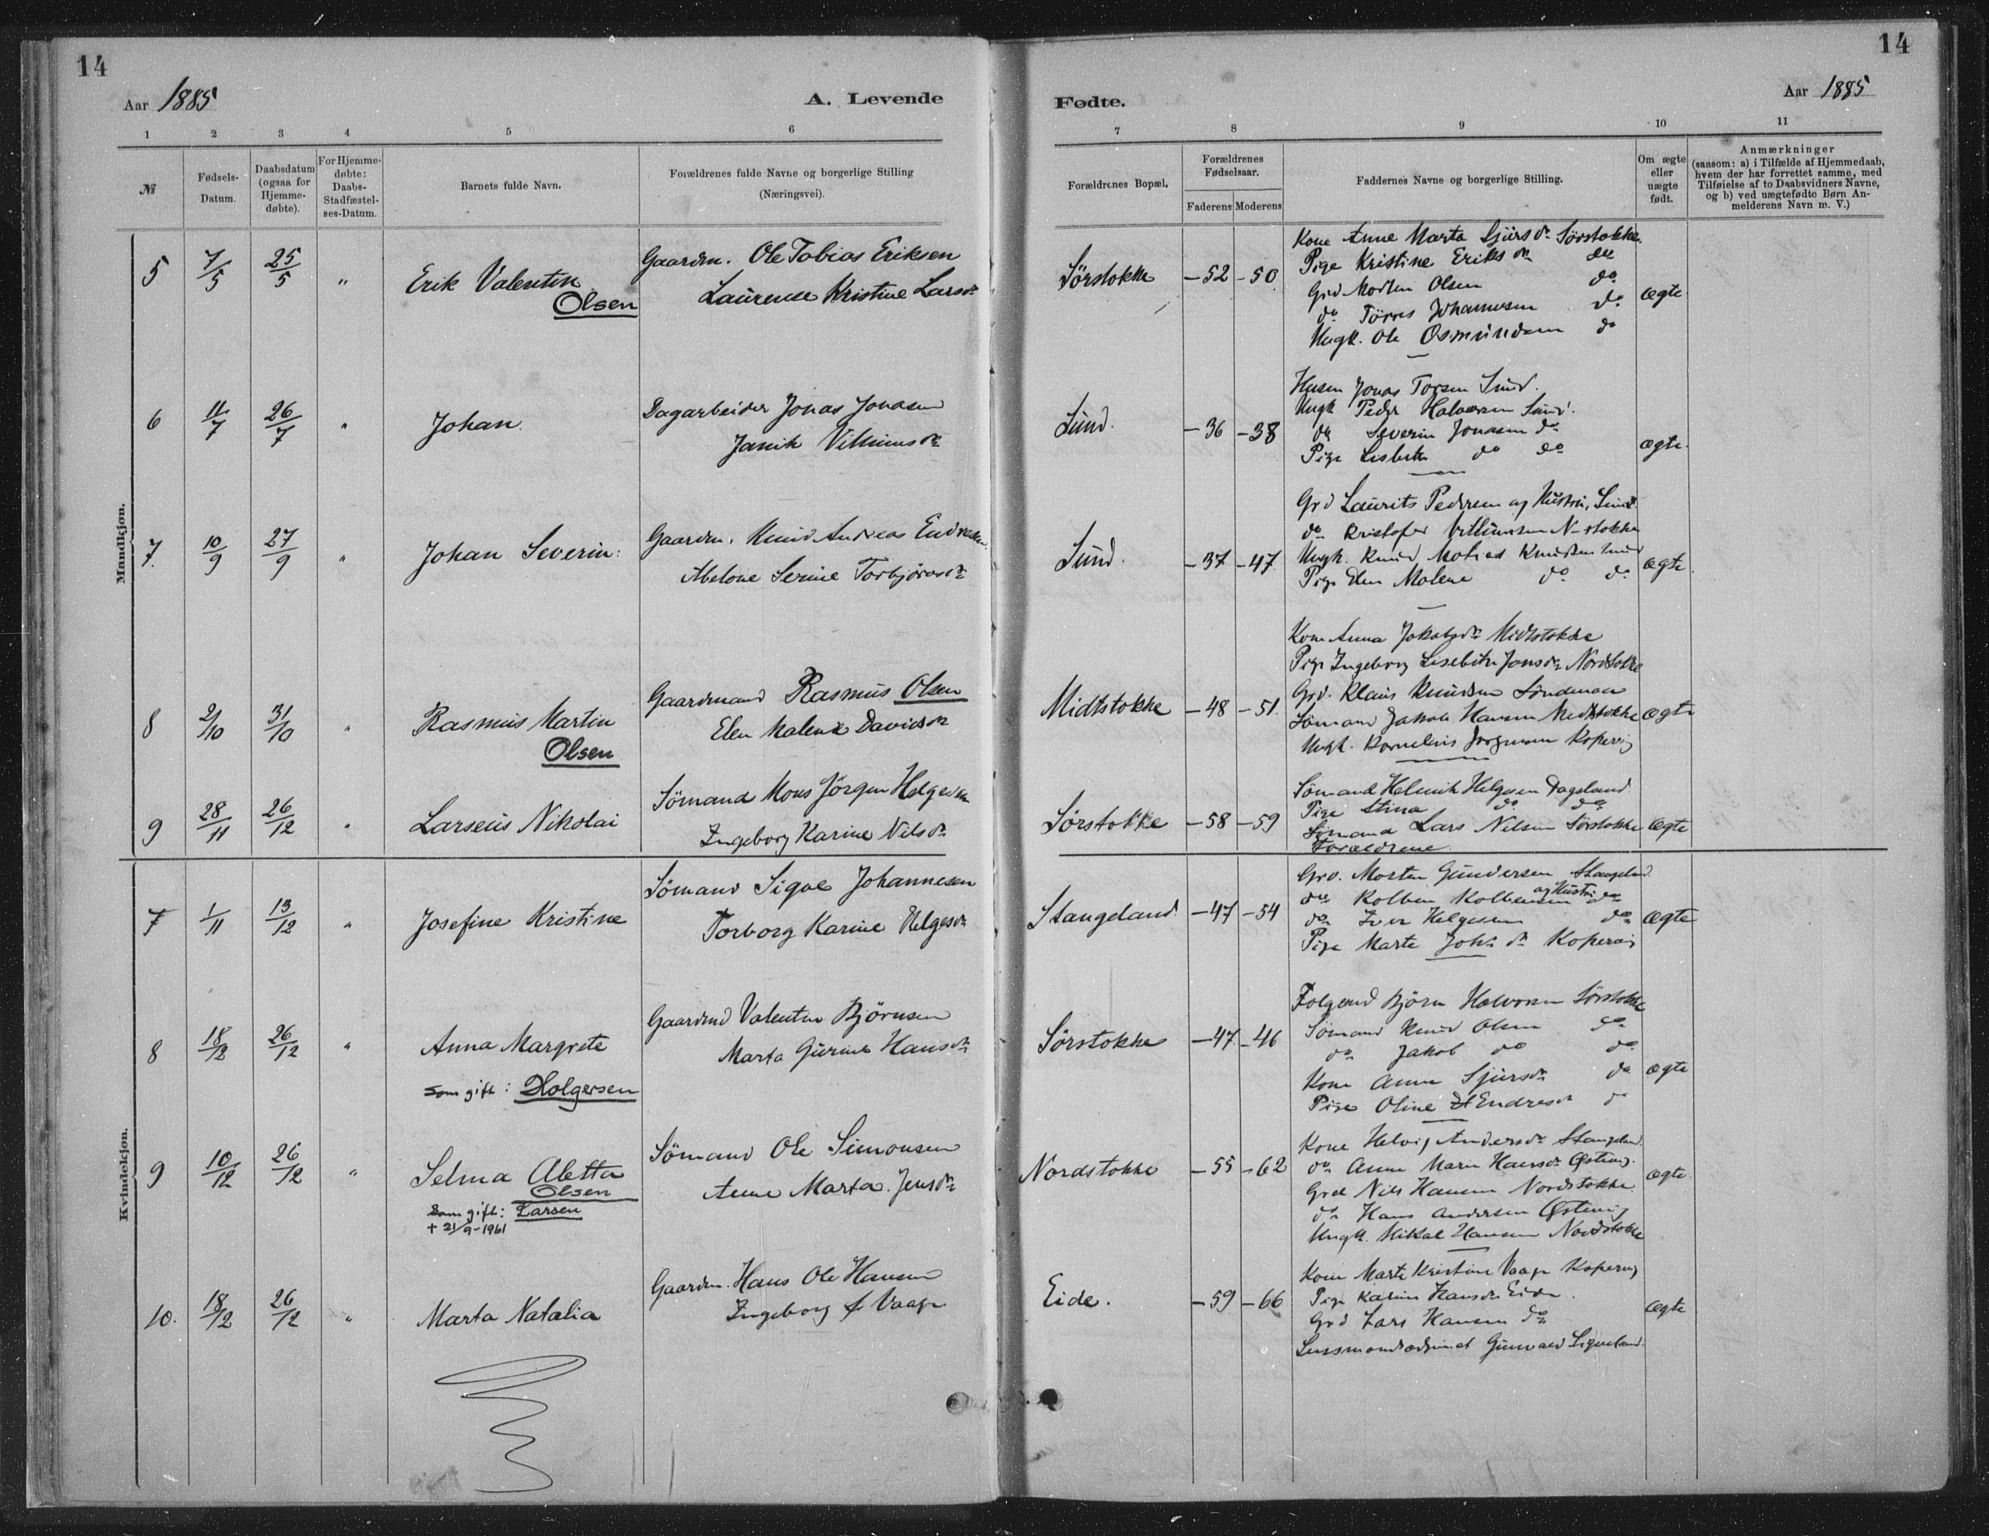 14
14
Aar 1885
A. Levende
Fødte.
Aar 1885
1 2 3 4 5 6 7 8 9 10 11
№
Fødsels-Datum.
Daabsdatum (ogsaa for Hjemme-døbte).
For Hjemme-døbte: Daabs-Stadfæstel-ses-Datum.
Barnets fulde Navn.
Forældrenes fulde Navne og borgerlige Stilling (Næringsvei).
Forældrenes Bopæl.
Forældrenes Fødselsaar.
Faderens Moderens
Faddernes Navne og borgerlige Stilling.
Om ægte eller uægte født.
Anmærkninger (saasom: a) i Tilfælde af Hjemmedaab, hvem der har forrettet samme, med Tilføielse af to Daabsvidners Navne, og b) ved uægtefødte Børn An-melderens Navn m. V.)
Mandkjøn.
5 7/5 25/5 " Erik Valentin
Olsen
Gaardm. Ole Tobias Eriksen
Laurense Kristine Larsdr
Sørstokke -52 -50
Kone Anne Marta Sjursdr Sørstokke
Pige Kristine Eriksdr do
Grd Morten Olsen do
do Tørres Johannesen do
Ungk. Ole Osmundsen do
ægte
6 11/7 26/7 " Johan
Dagarbeider Jonas Jonasen
Janik Villumsdr
Sund. -36 -38
Husm Jonas Torsen Sund.
Ungk Peder Halvorsen Sund.
do Severin Jonasen do
Pige Lisbeth do do
ægte.
7. 10/9 27/9 " Johan Severin.
Gaardm. Knud Andreas Endresen.
Abelone Serine Torbjørnsdr
Sund. -37 -47
Grd Laurits Pedersen og Hustru, Sund
do Kristofer Villumsen N-stokke
Ungk. Knud Knudsen Sund
Pige Elen Malene do do
ægte
8 2/10 31/10 " Rasmus Martin
Olsen
Gaardmand Rasmus Olsen
Elen Malene Davidsdr
Midtstokke -48 -51.
Kone Anna Jakobsdr Midtstokke
Pige Ingeborg Lisebeth Jonsdr Nordstokke
Grd. Klaus Knudsen
Sømand Jakob Hansen Midtstokke
Ungk. Kornelius Jørgensen Kopervig
ægte
9 28/11 26/12 " Larseus Nikolai
Sømand Mons Jørgen Helgesen
Ingeborg Karine Nilsdr
Sørstokke -58 -59
Sømand Helmik Helgesen Dagsland
Pige Stina do do
Sømand Lars Nilsen Sørstokke
Forældrene
ægte
Kvindekjøn.
7 1/11 13/12 " Josefine Kristine
Sømand Sigve Johannesen
Torborg Karine Helgesdr
Stangeland -47 -54
Grd. Morten Gundersen Stangeland
do Kolben Kolbensen og Hustru do
do Iver Helgesen do
Pige Marte Johs dr Kopervig
ægte
8 18/12 26/12 " Anna Margrete
Som gift: Holgersen
Gaardmd Valentin Bjørnsen
Marta Gurine Hansdr
Sørstokke -47 -46
Folgemd Bjørn Halvorsen Sørstokke
Sømand Knud Olsen do
do Jakob do do
Kone Anna Sjursdr do
Pige Oline Endresdr do
ægte
9 10/12 26/12 " Selma Aletta
Olsen
Som gift: Larsen
+ 21/9-1961
Sømand Ole Simonsen
Anne Marta Jensdr
Nordstokke -55 -62
Kone Helvig Andersdr Stangeland
do Anne Marie Hansdr Østevig.
Grd Nils Hansen Nordstokke
do Hans Andersen Østevig
Ungk. Mikal Hansen Nordstokke
ægte.
10. 18/12 26/12 " Marta Natalia
Gaardm. Hans Ole Hansen
Ingeborg f Vaage
Eide. -59 -66
Kone Marte Kristine Vaage Kopervig
Pige Karine Hansdr Eide.
Grd Lars Hansen do
Gunvald
ægte